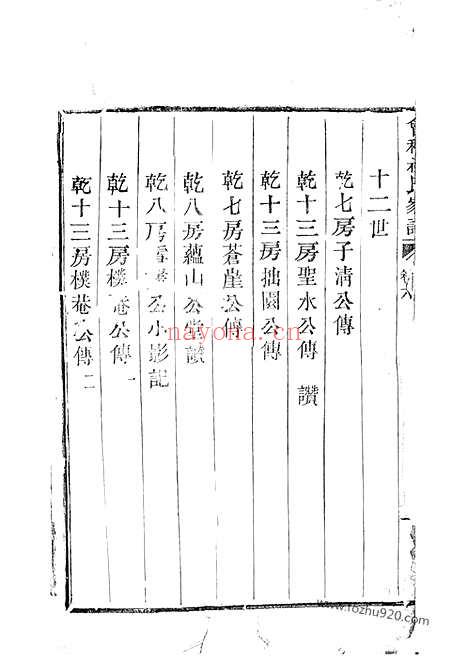 會稽 氏家譜 卷六
十二世
乾七房子清公傳
乾十三房聖水公傳 讚
乾十三房拙園公傳
乾七房蒼崖公傳
乾八房蘊山公 讚
乾八房 公小影記
乾十三房樸菴公傳 一
乾十三房樸菴公傳 二
nayona.cn
www.rozhu920.com